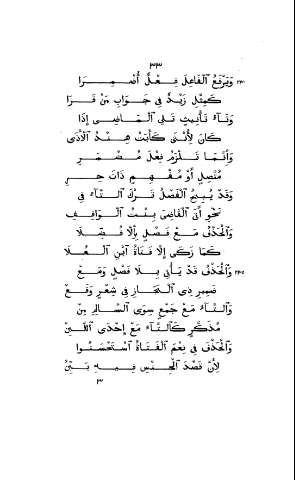 ٣٣
٢٣٠ وَيَرْفَعُ الْفَاعِلَ فِعْلٌ أُضْمِرَا
كَمِثْلِ زَيْدٌ فِي جَوَابِ مَنْ قَرَا
وَتَاءُ تَأْنِيثٍ تَلِي الْمَاضِي إِذَا
كَانَ لِأُنْثَى كَأَبَتْ هِنْدُ الْأَذَى
وَإِنَّمَا تَلْزَمُ فِعْلَ مُضْمَرِ
مُتَّصِلٍ أَوْ مُفْهِمٍ ذَاتَ حِرِ
وَقَدْ يُبِيحُ الْفَصْلُ تَرْكَ التَّاءِ فِي
نَحْوِ أَتَى الْقَاضِيَ بِنْتُ الْوَاقِفِ
وَالْحَذْفُ مَعْ فَصْلٍ بِإِلَّا فُضِّلَا
كَمَا زَكَى إِلَّا فَتَاةُ ابْنِ الْعُلَا
٢٣٥ وَالْحَذْفُ قَدْ يَأْتِي بِلَا فَصْلٍ وَمَعْ
ضَمِيرِ ذِي الْمَجَازِ فِي شِعْرٍ وَقَعْ
وَالتَّاءُ مَعْ جَمْعٍ سِوَى السَّالِمِ مِنْ
مُذَكَّرٍ كَالتَّاءِ مَعْ إِحْدَى اللَّبِنْ
وَالْحَذْفَ فِي نِعْمَ الْفَتَاةُ اسْتَحْسَنُوا
لِأَنَّ قَصْدَ الْجِنْسِ فِيهِ بَيِّنُ
٣